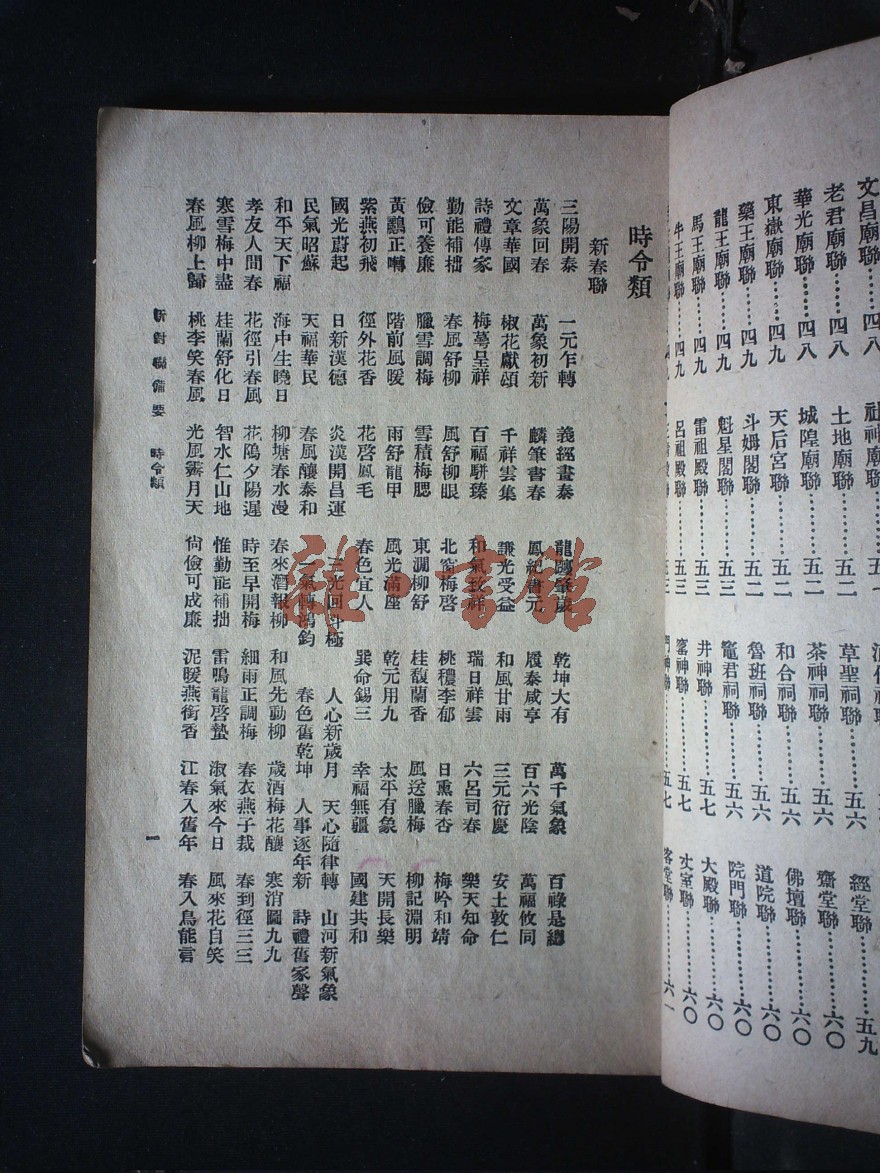 文昌廟聯……四八
老君廟聯……四八
華光廟聯……四八
東嶽廟聯……四九
藥王廟聯……四九
龍王廟聯……四九
馬王廟聯……四九
牛王廟聯……四九
社神廟聯……五一
土地廟聯……五二
城隍廟聯……五二
天后宮聯……五二
斗姆閣聯……五二
魁星閣聯……五三
雷祖殿聯……五三
呂祖殿聯……五三
草聖祠聯……五六
茶神祠聯……五六
和合祠聯……五六
魯班祠聯……五六
竈君祠聯……五六
井神聯……五七
窰神聯……五七
經堂聯……五九
齋堂聯……六〇
佛壇聯……六〇
道院聯……六〇
院門聯……六〇
大殿聯……六〇
丈室聯……六〇
客堂聯……六一
時令類
新春聯
三陽開泰 一元乍轉 義經畫泰 龍躔肇歲 乾坤大有 萬千氣象 百祿是總
萬象回春 萬象初新 麟筆書春 鳳紀書元 履泰咸亨 百六光陰 萬福攸同
文章華國 椒花獻頌 千祥雲集 謙光受益 和風甘雨 三元衍慶 安土敦仁
詩禮傳家 梅萼呈祥 百福騈臻 和氣致祥 瑞日祥雲 六呂司春 樂天知命
勤能補拙 春風舒柳 風舒柳眼 北窗梅啓 桃穠李郁 日熏春杏 梅吟和靖
儉可養廉 臘雪調梅 雪積梅腮 東澗柳舒 桂馥蘭香 風送臘梅 柳記淵明
黃鸝正囀 階前風暖 雨舒龍甲 風光滿座 乾元用九 太平有象 天開長樂
紫燕初飛 徑外花香 花啓鳳毛 春色宜人 巽命錫三 幸福無疆 國建共和
國光蔚起 日新漢德 炎漢開昌運 三光回斗極 人心新歲月 天心隨律轉 山河新氣象
民氣昭蘇 天福華民 春風釀泰和 一氣轉鴻鈞 春色舊乾坤 人事逐年新 詩禮舊家聲
和平天下福 海中生曉日 柳塘春水漫 春來潛報柳 和風先動柳 歲酒梅花釀 寒消圖九九
孝友人間春 花徑引春風 花隖夕陽遲 時至早開梅 細雨正調梅 春衣燕子裁 春到徑三三
寒雪梅中盡 桂蘭舒化日 智水仁山地 惟勤能補拙 雷鳴龍啓蟄 淑氣來今日 風來花自笑
春風柳上歸 桃李笑春風 光風霽月天 尙儉可成廉 泥暖燕銜香 江春入舊年 春入鳥能言
新對聯備要 時令類 一
雜·書館